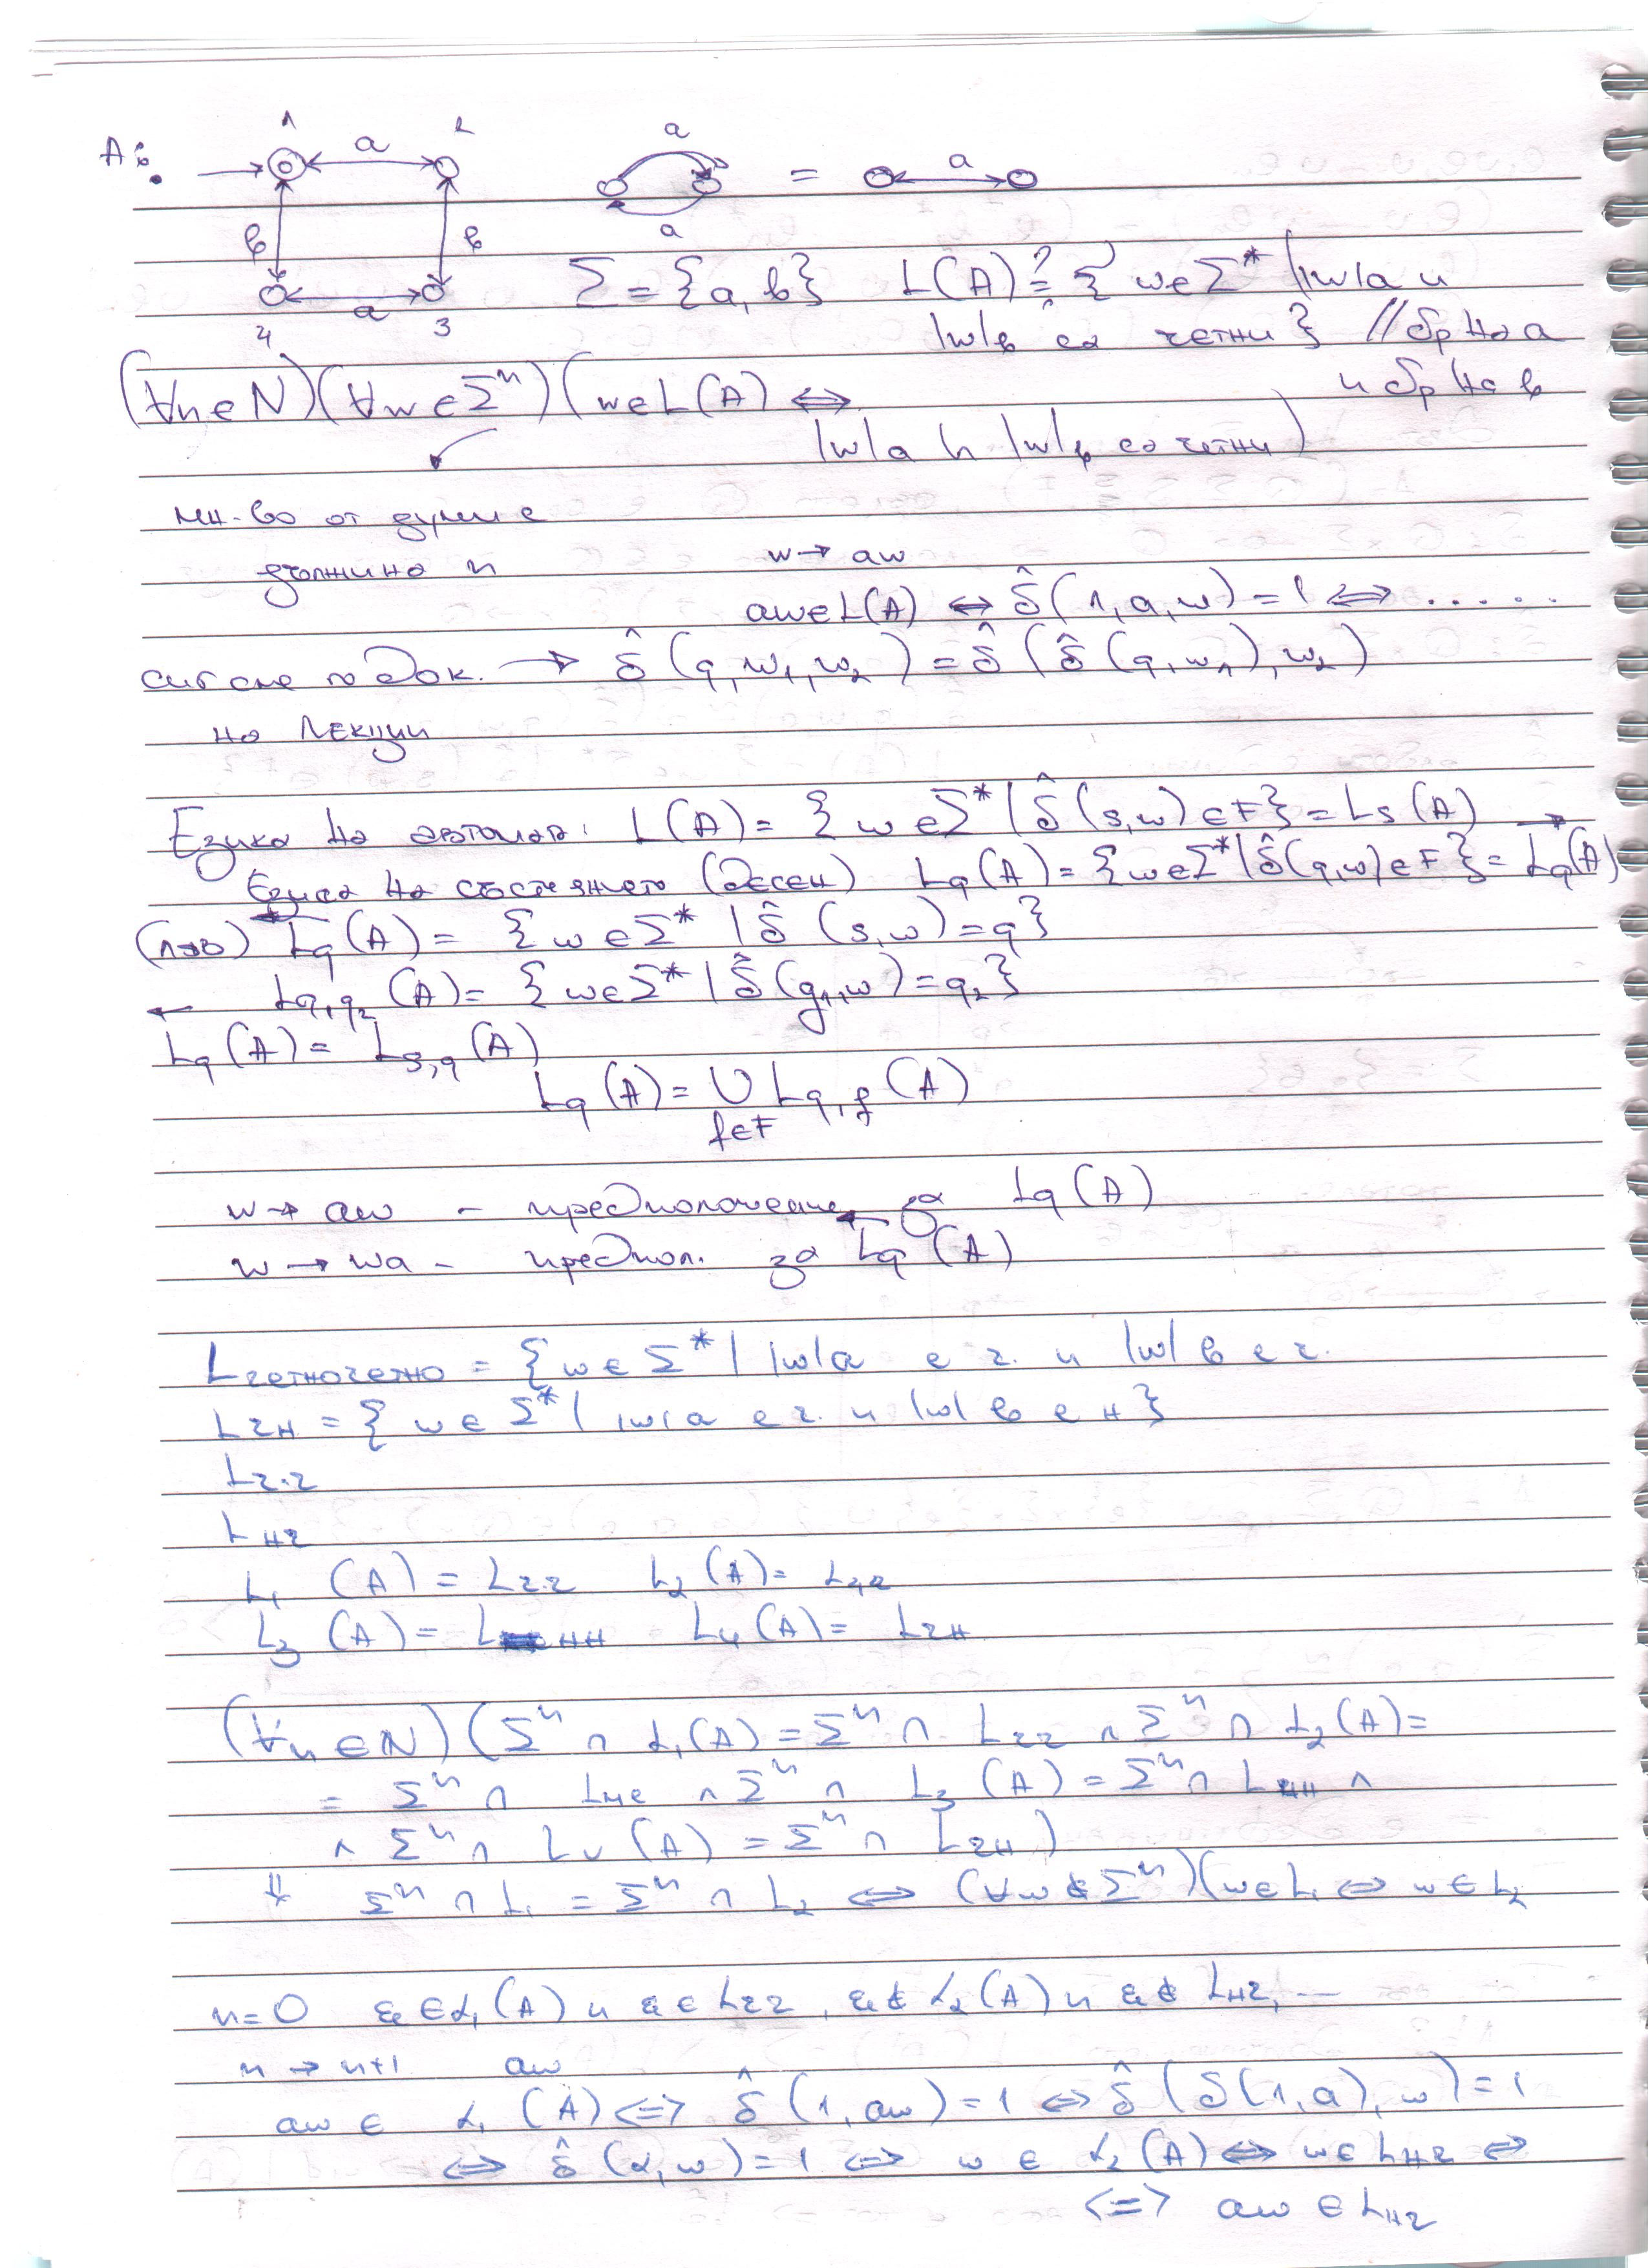 A: 1 a 2 a = a
в в a
4 a 3 Σ = {a, b} L(A) =? { w∈Σ* | |w|a и
|w|в са четни } // бр на a
и бр на в
(∀n∈N)(∀w∈Σⁿ)(w∈L(A) ⇔
|w|a и |w|в са четни)
мн-во от думи с
дължина n
w → aw
aw∈L(A) ↔ δ̂(1,a,w) = 1 ⇔ .....
сигсме го док. → δ̂(q,w₁,w₂) = δ̂(δ̂(q,w₁),w₂)
на лекции
Езика на автомата: L(A) = {w∈Σ* | δ̂(s,w)∈F} = Ls(A) →
Езика на състоянието (десен) Lq(A) = {w∈Σ* | δ̂(q,w)∈F} = Lq(A)
(ляв) ←Lq(A) = {w∈Σ* | δ̂(s,w) = q}
Lq₁q₂(A) = {w∈Σ* | δ̂(q₁,w) = q₂}
←Lq(A) = Ls,q(A)
Lq(A) = ∪ Lq,f(A)
f∈F
w → aw – предположение за Lq(A)
w → wa – предпол. за ←Lq(A)
Lчетночетно = {w∈Σ* | |w|a е ч. и |w|в е ч.
Lчн = {w∈Σ* | |w|a е ч. и |w|в е н}
Lч.ч
Lнч
L₁(A) = Lч.ч L₂(A) = Lнч
L₃(A) = Lнн L₄(A) = Lчн
(∀n∈N)(Σⁿ ∩ L₁(A) = Σⁿ ∩ Lчч ∧ Σⁿ ∩ L₂(A) =
= Σⁿ ∩ Lнч ∧ Σⁿ ∩ L₃(A) = Σⁿ ∩ Lнн ∧
∧ Σⁿ ∩ L₄(A) = Σⁿ ∩ Lчн)
Σⁿ ∩ L₁ = Σⁿ ∩ L₂ ⇔ (∀w∈Σⁿ)(w∈L₁ ⇔ w∈L₂
n=0 ε∈L₁(A) и ε∈Lчч, ε∉L₂(A) и ε∉Lнч, ...
n → n+1 aw
aw ∈ L₁(A) ⇔ δ̂(1,aw) = 1 ⇔ δ̂(δ(1,a),w) = 1
⇔ δ̂(2,w) = 1 ⇔ w ∈ L₂(A) ⇔ w∈Lнч ⇔
⇔ aw ∈ Lнч